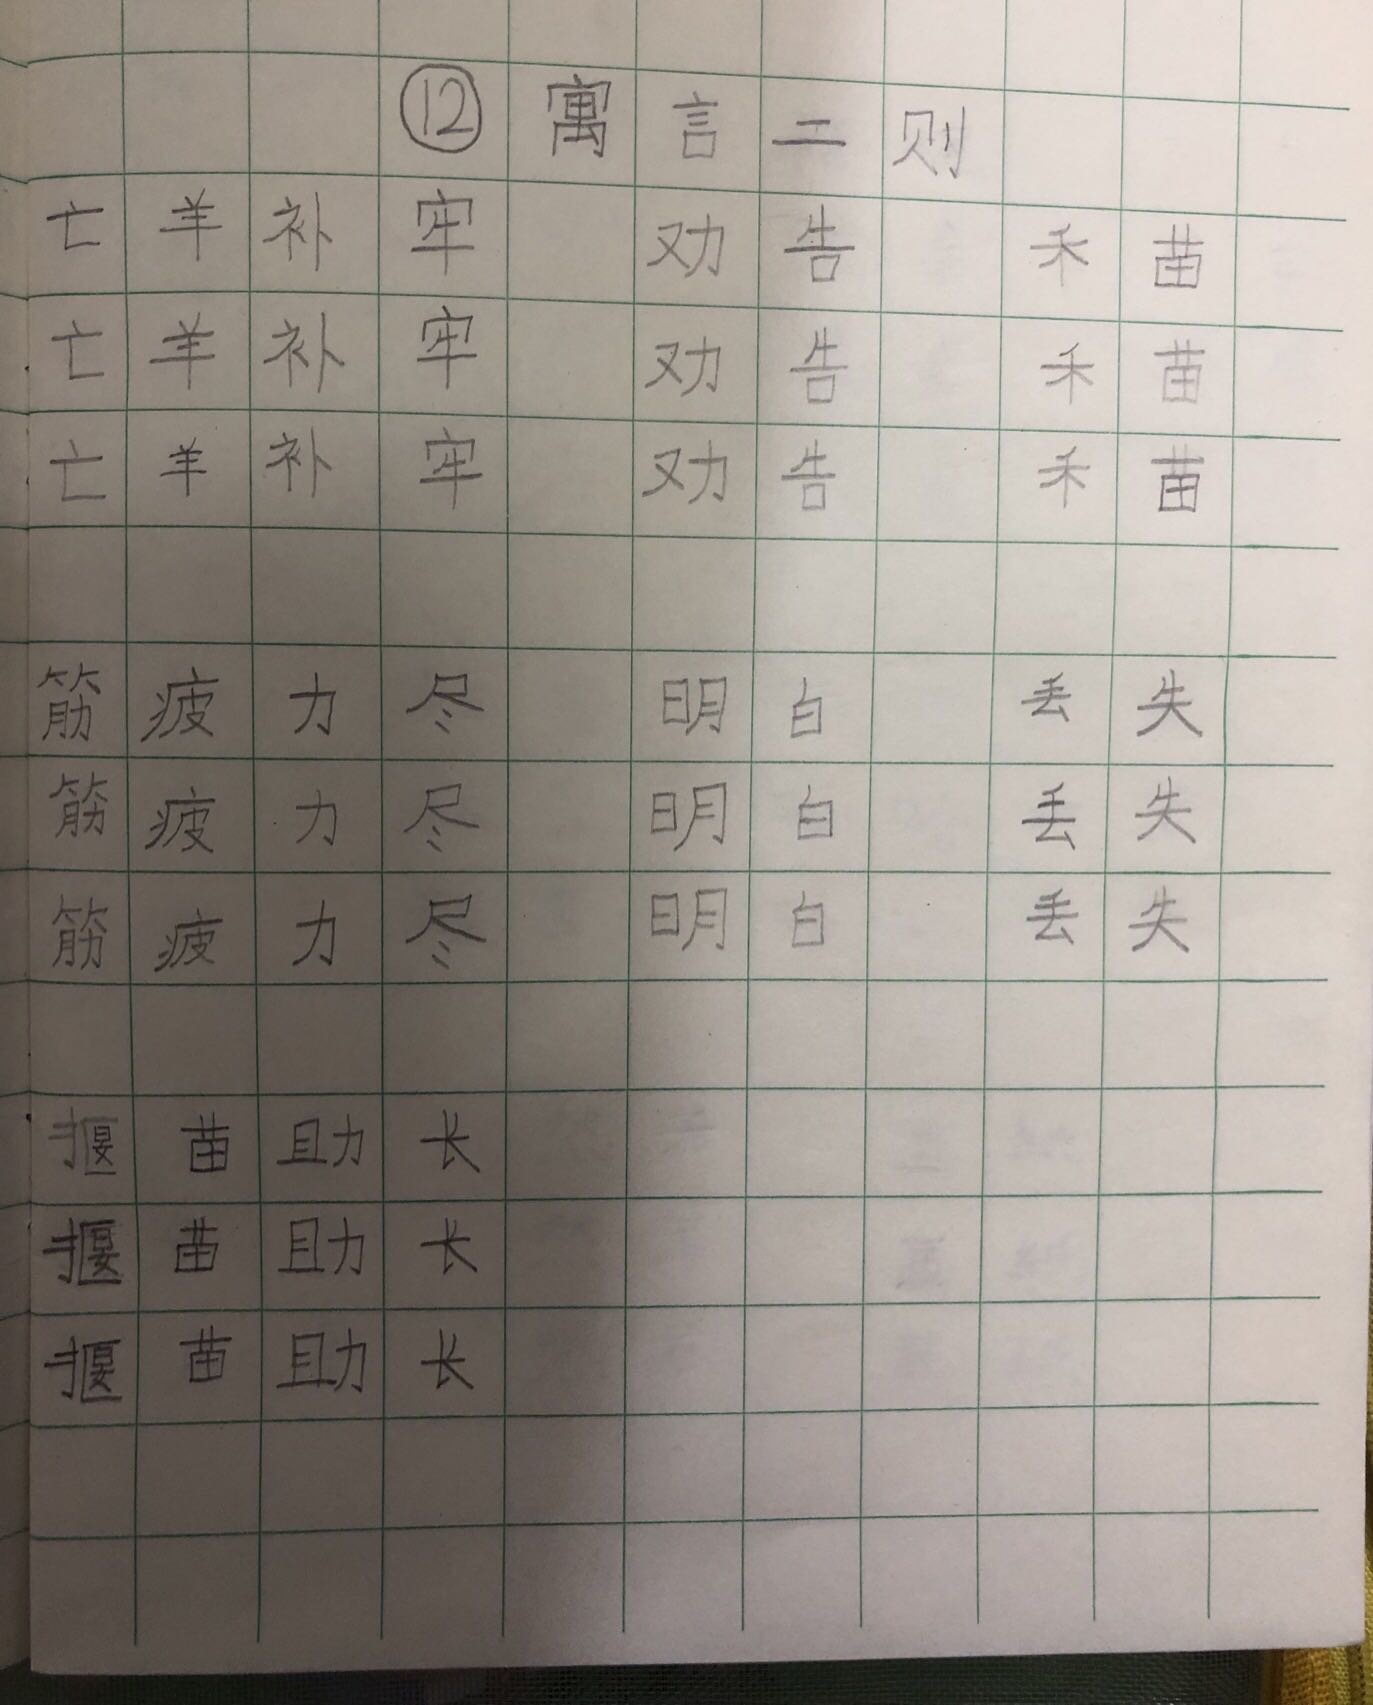 ⑫ 寓言二则
亡羊补牢 劝告 禾苗
亡羊补牢 劝告 禾苗
亡羊补牢 劝告 禾苗
筋疲力尽 明白 丢失
筋疲力尽 明白 丢失
筋疲力尽 明白 丢失
揠苗助长
揠苗助长
揠苗助长